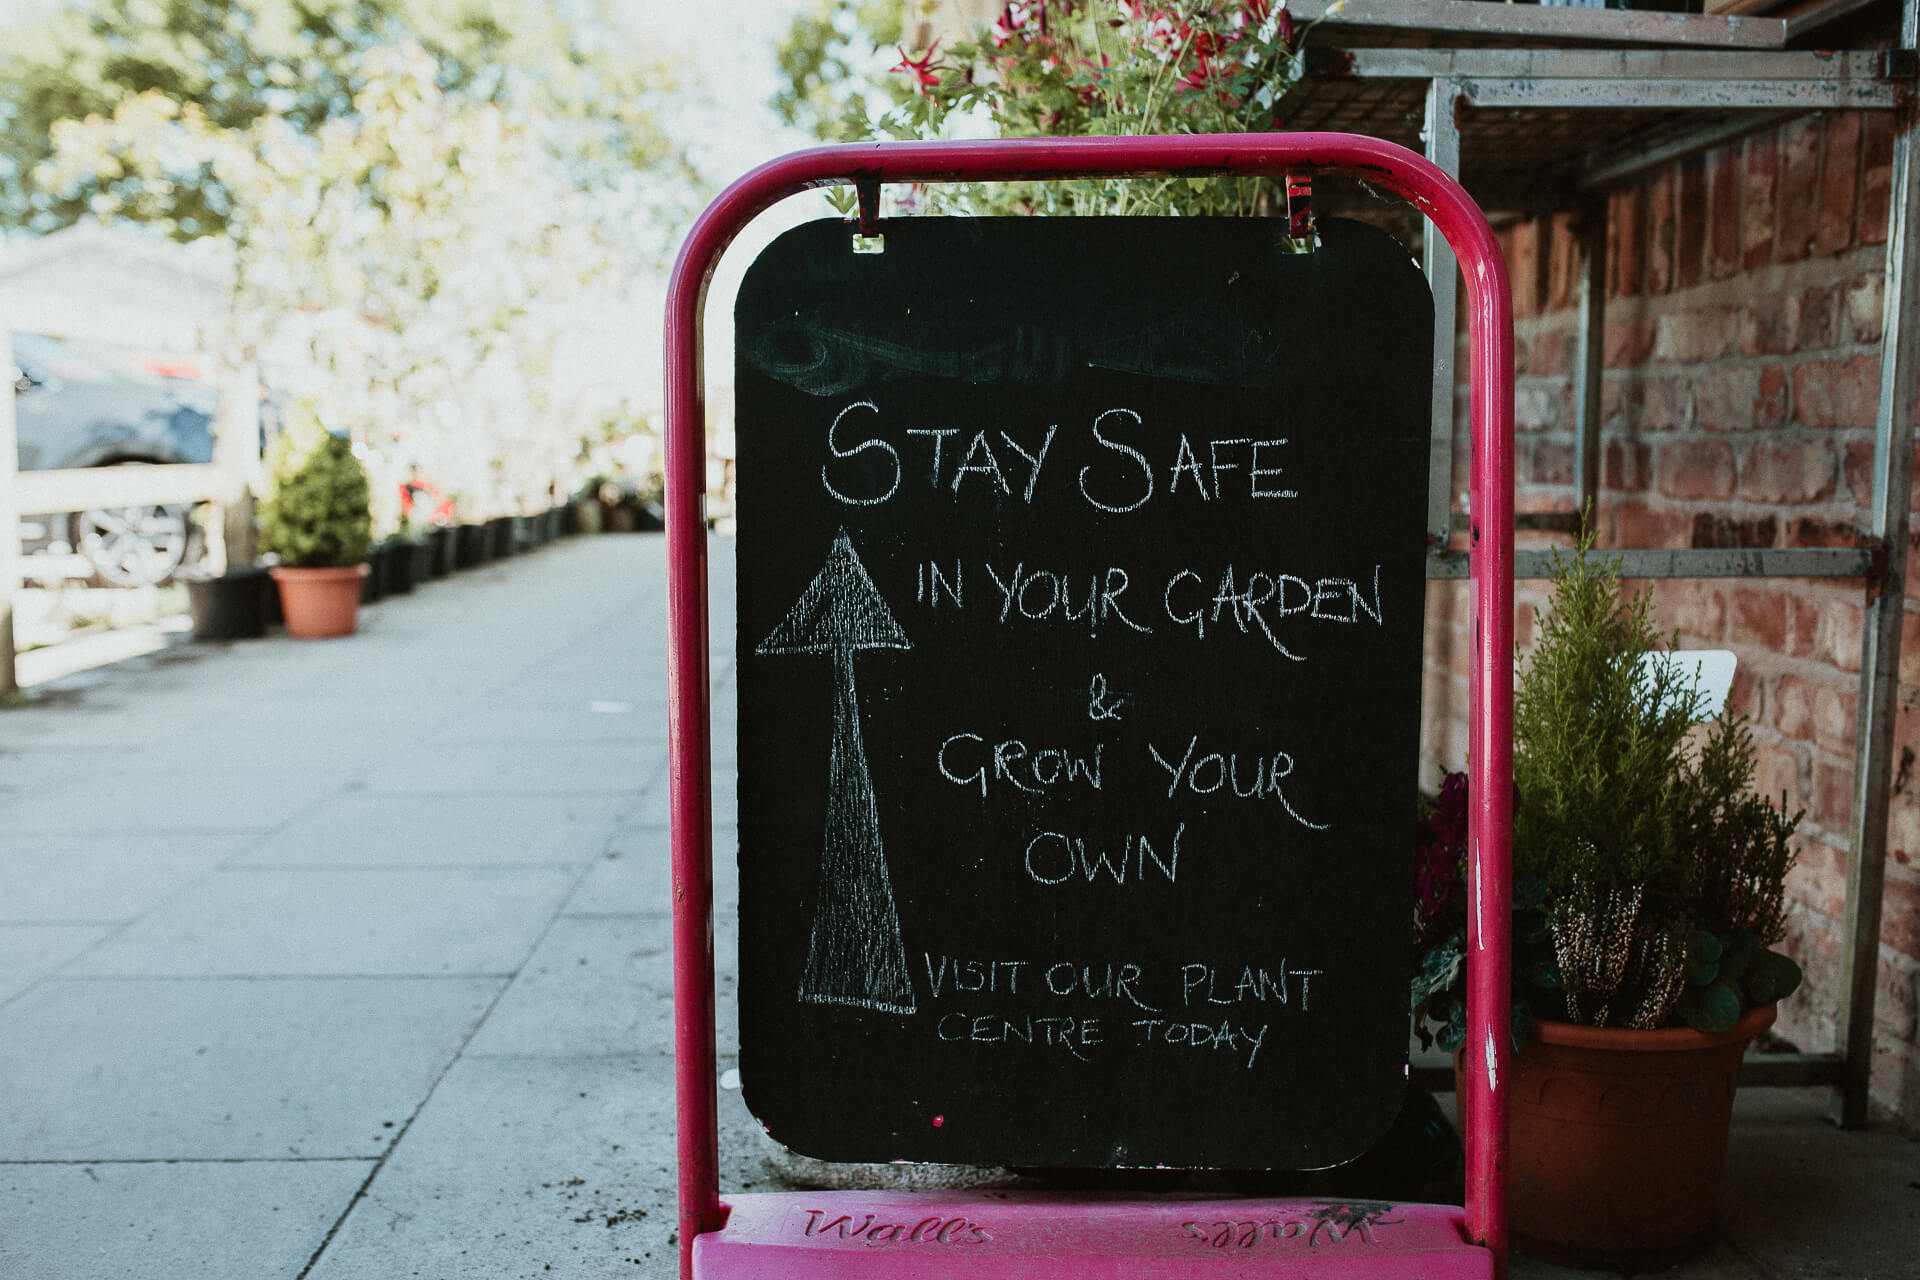 STAY SAFE
IN YOUR GARDEN
&
GROW YOUR
OWN
VISIT OUR PLANT
CENTRE TODAY
Wall's Wall's